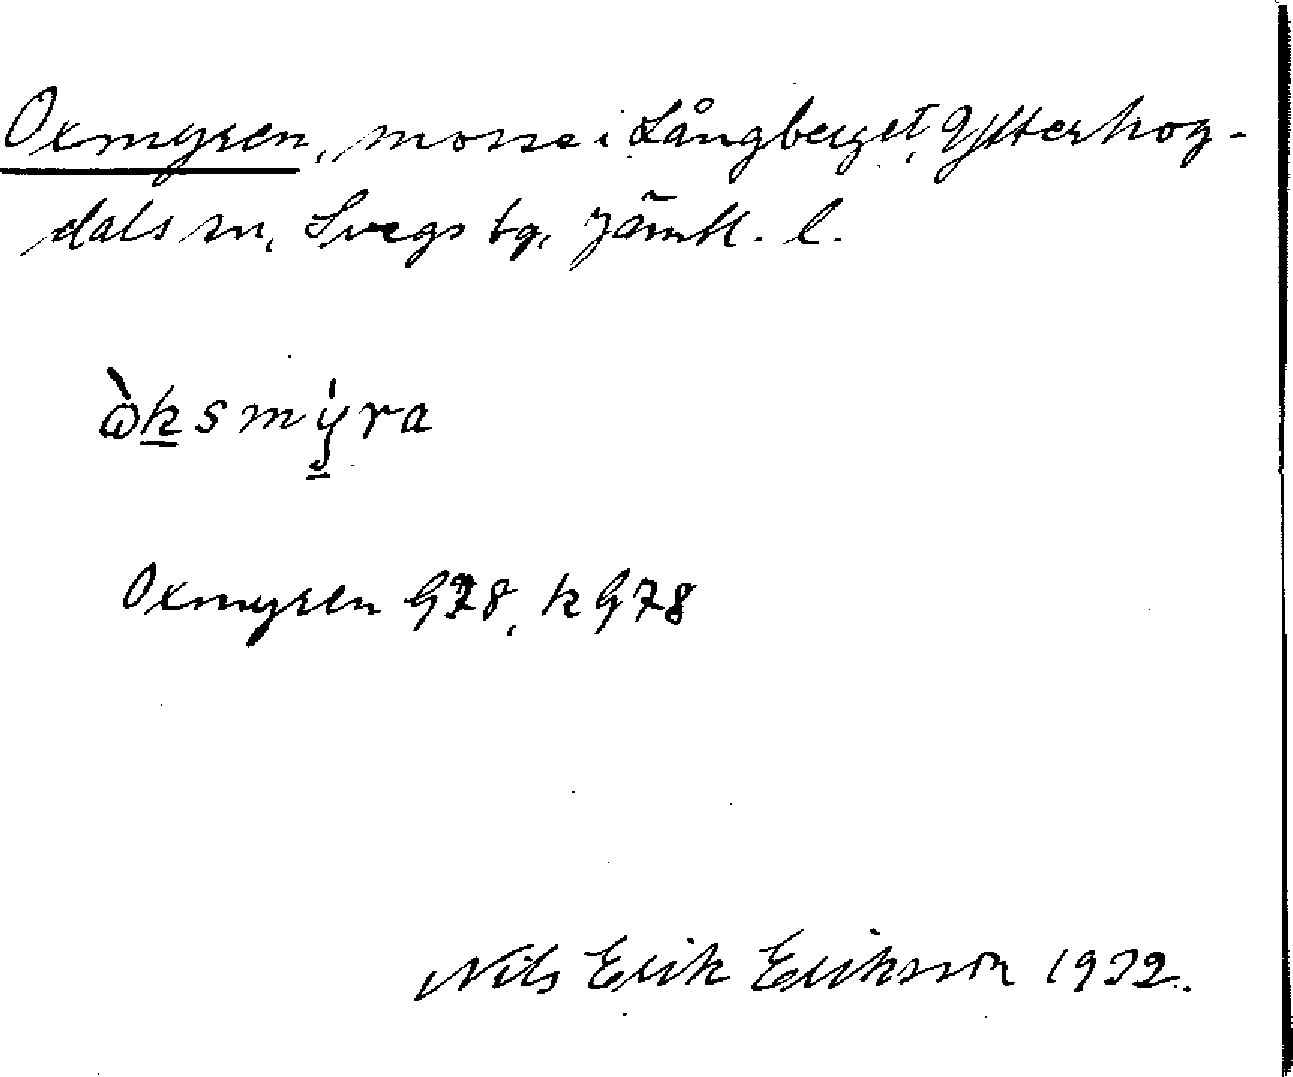 Oxmyren, mosse i Långberget, Ytterhog-
dals sn, Svegs tg, Jämtl. l.
ὼksmy̱̍ra
Oxmyren G78, k G78
Nils Erik Eriksson 1932.